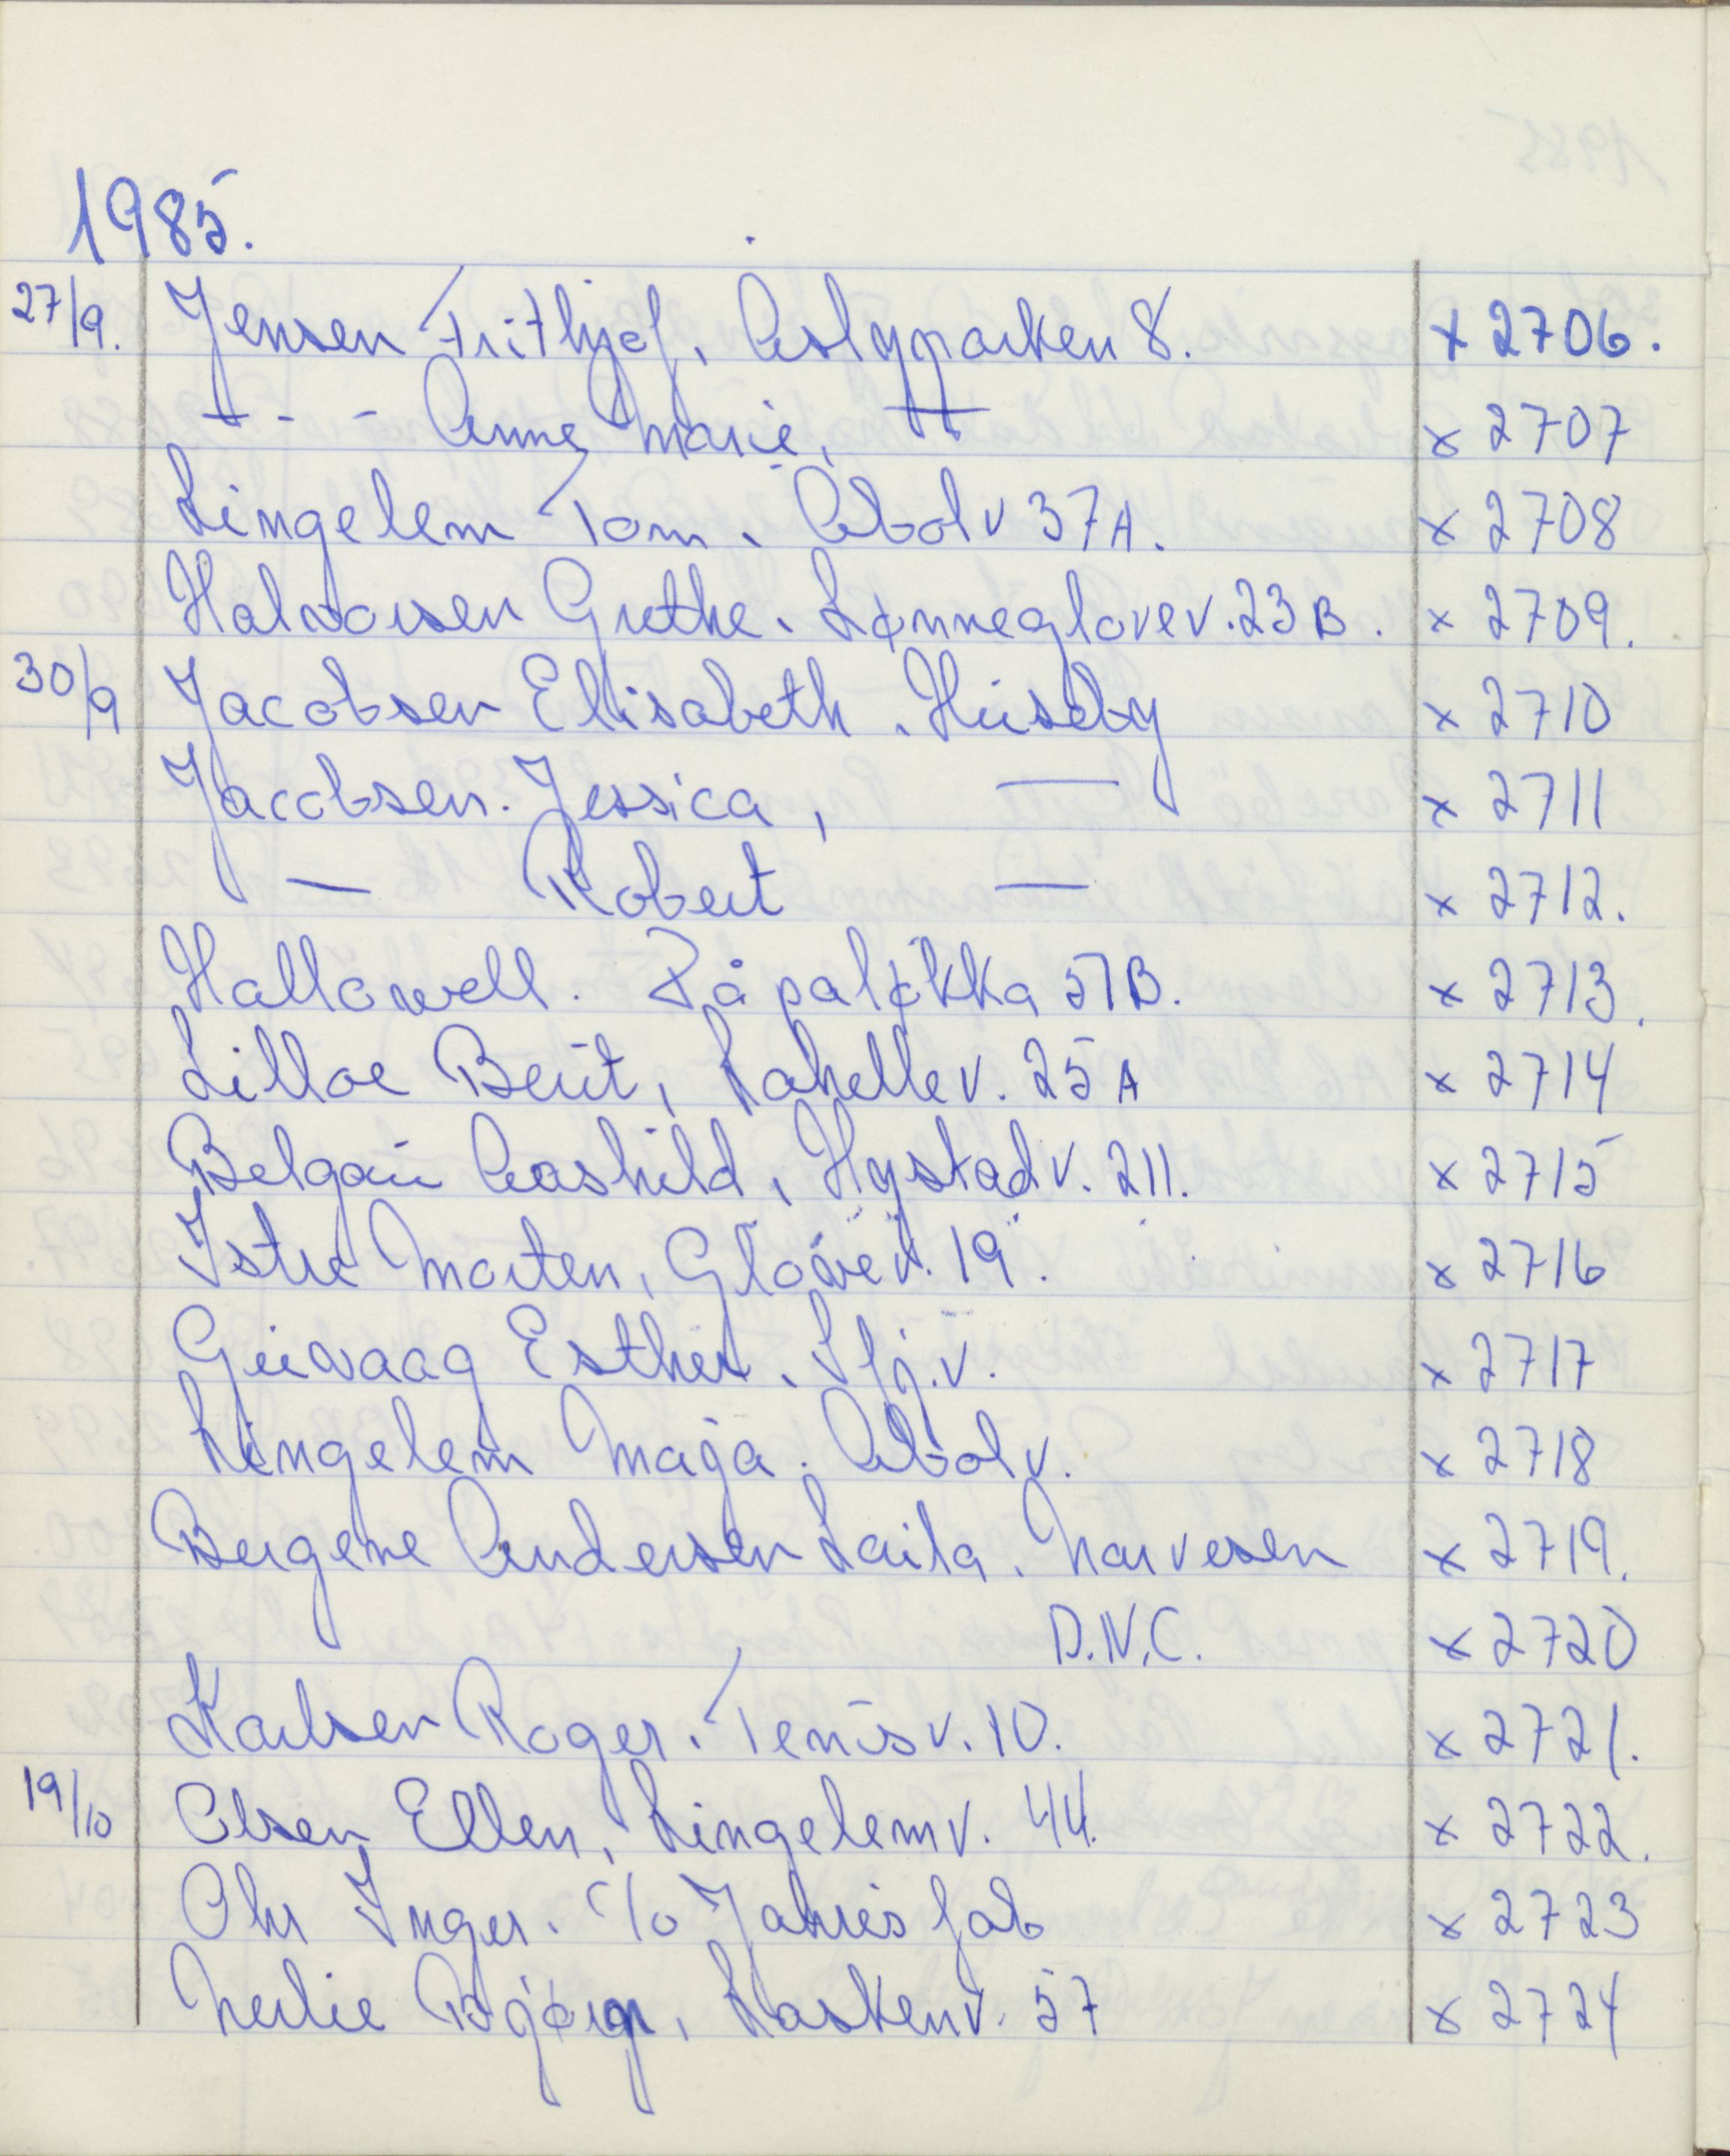 1985.
27/9. Jensen Frithjof, Aslyparken 8. x 2706.
— - - Anne Marie, — x 2707
Lingelem Tom. Abol v 37A. x 2708
Halvorsen Grethe. Lønneglovev. 23 B. x 2709.
30/9 Jacobsen Elisabeth. Huseby x 2710
Jacobsen. Jessica, — x 2711
— Robert — x 2712.
Hallowell. Påpaløkka 57B. x 2713.
Lilloe Berit, Lahellev. 25 A x 2714
Belgau Aashild, Hystad v. 211. x 2715
Istre Morten, Glovev. 19. x 2716
Guivaag Esther. Sfj.v. x 2717
Lingelem Maja. Abol v. x 2718
Bergene Andersen Laila. Narvesen x 2719.
D.N.C. x 2720
Karlsen Roger. Tenisv. 10. x 2721.
19/10 Olsen Ellen, Lingelemv. 44. x 2722.
Ohr Inger. c/o Jahres fab x 2723
Merlie Bjørgr, Laskenv. 57 x 2724